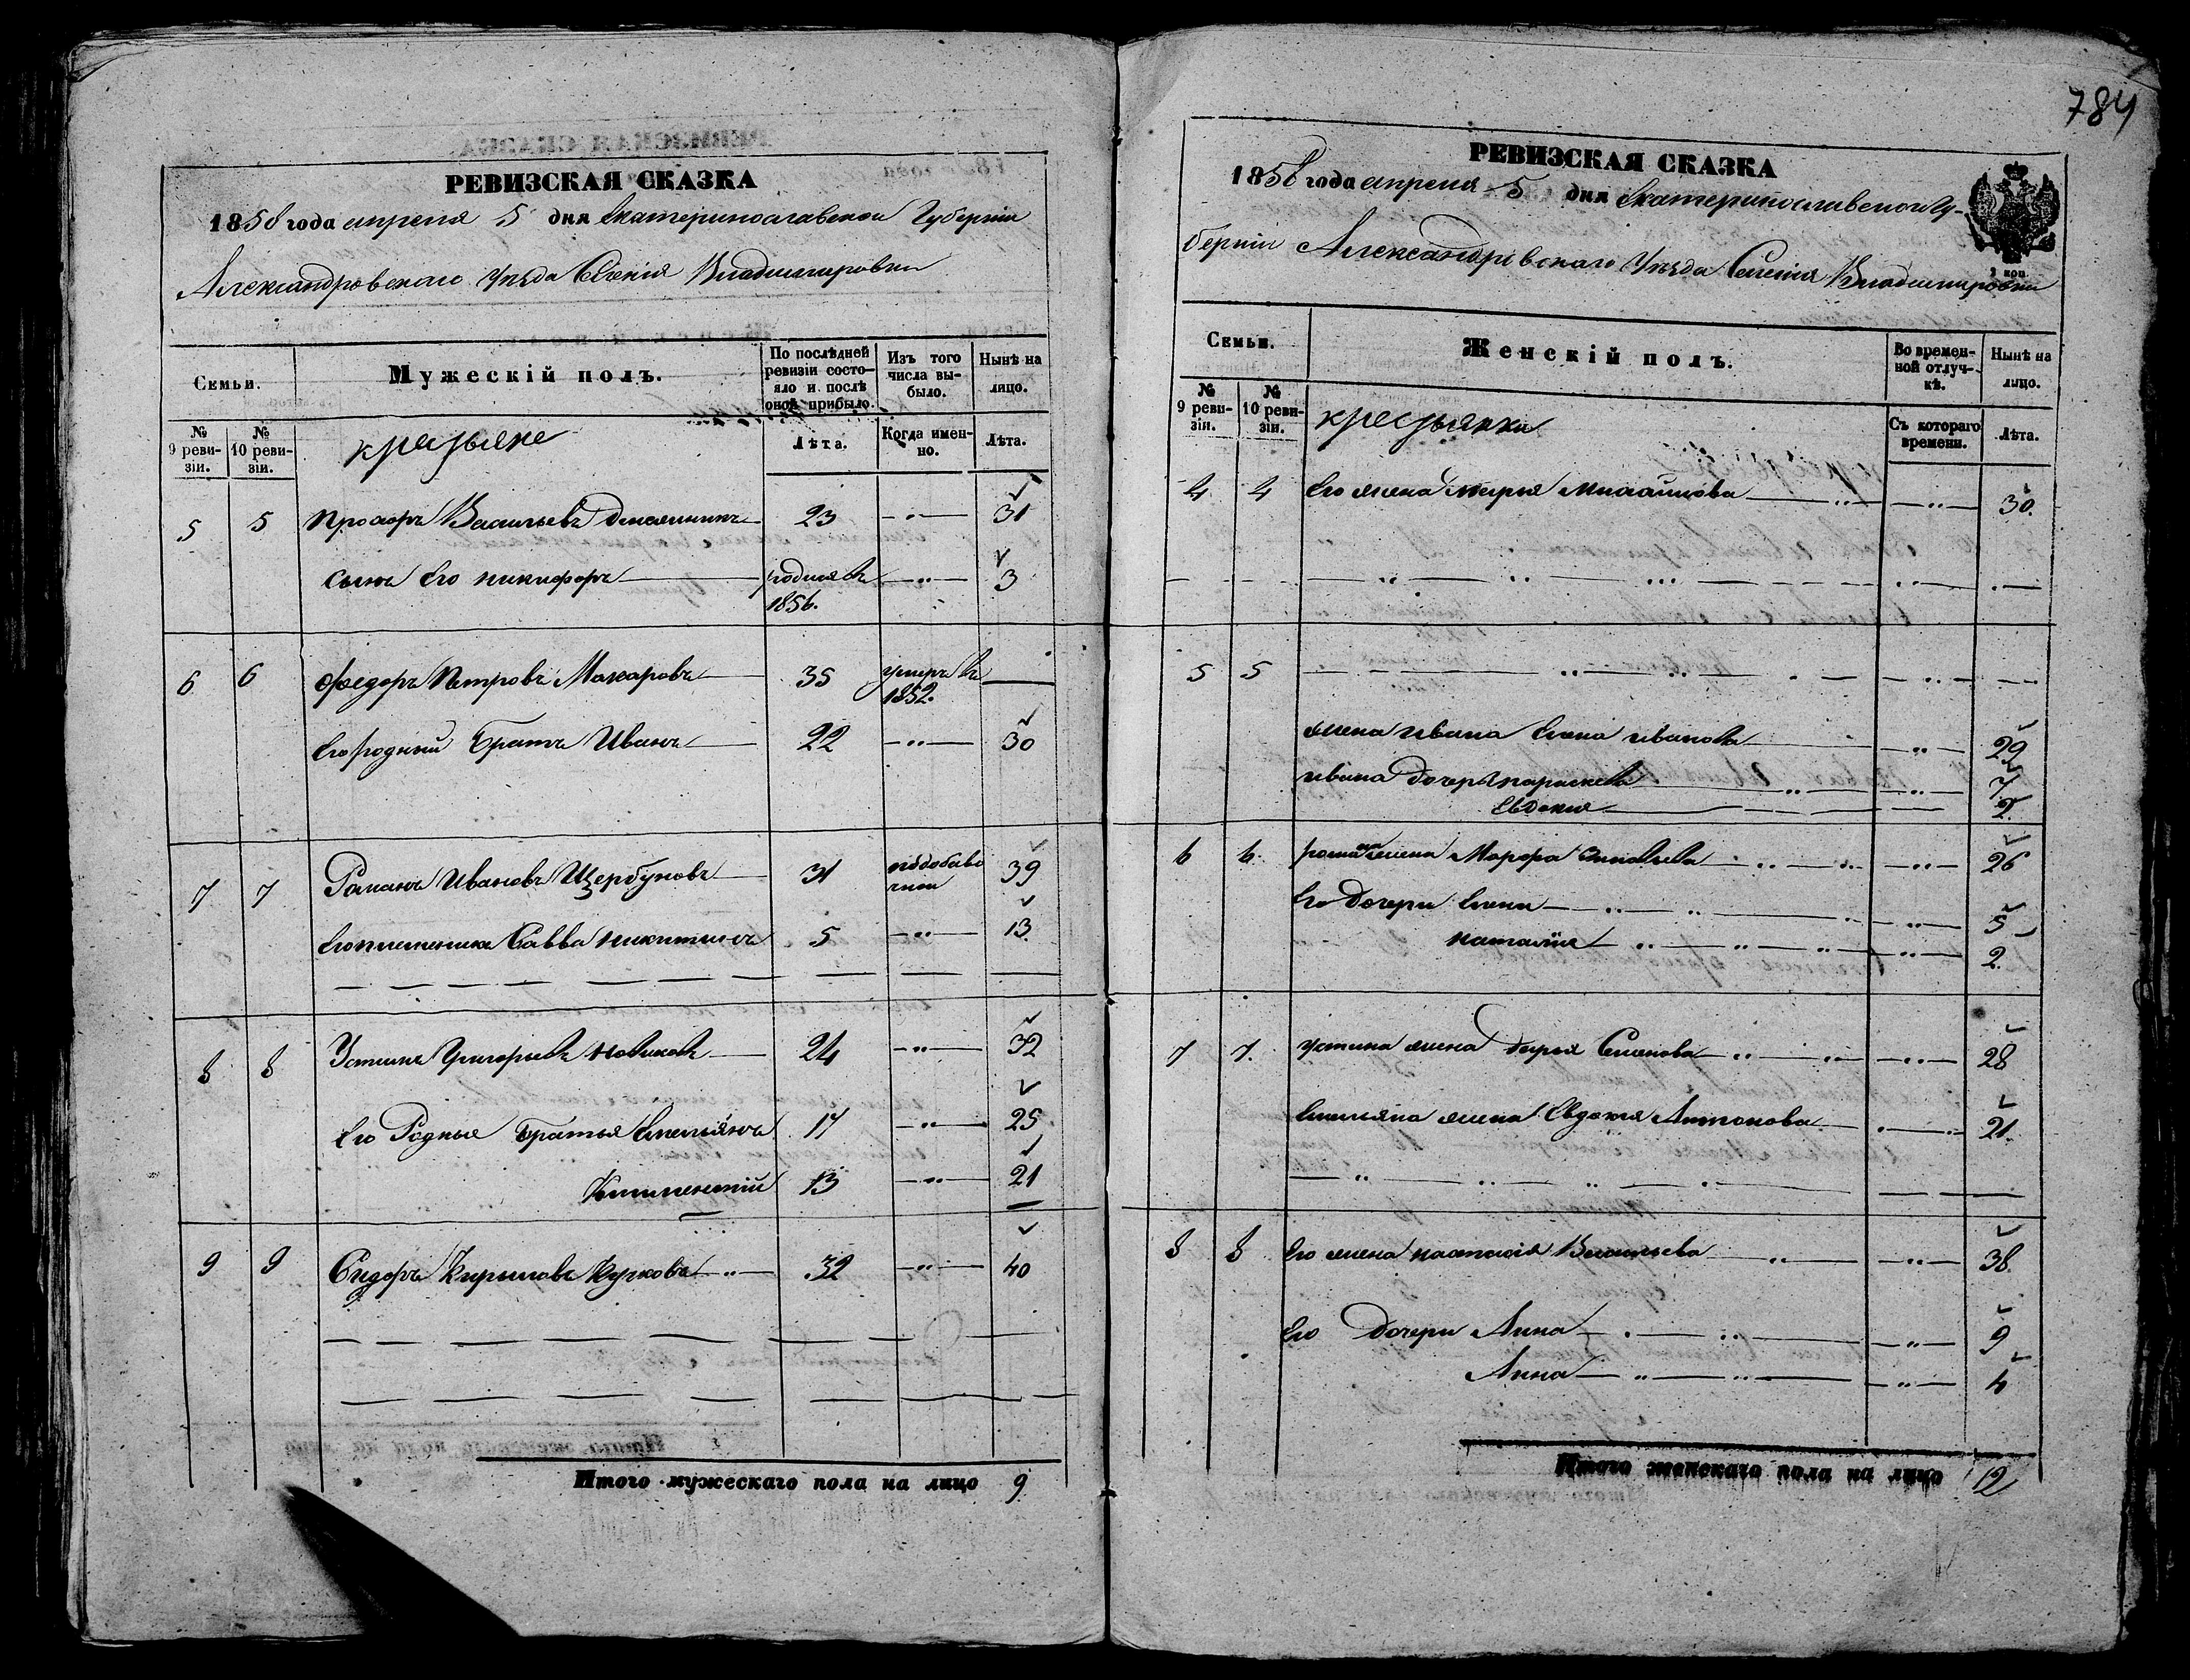 784
РЕВИЗСКАЯ СКАЗКА
1858 года апреля 5 дня Екатеринославской Губерніи
Александровскаго Уезда Селенія Владимировки
Семьи.
Мужескій полъ.
По послѣдней ревизіи состо-
яло и послѣ
оной прибыло.
Изъ того
числа вы-
было.
Нынѣ на
лицо.
№ 9 реви-
зіи.
№ 10 реви-
зіи.
крестьяне
Лѣта.
Когда имен-
но.
Лѣта.
5 5 Прохоръ Васильевъ 23 —"— 31
сынъ Его никифоръ родился въ 1856. —"— 3
6 6 Федоръ Петровъ Макаровъ 35 умеръ въ 1852. —
Его родный Братъ Иванъ 22 —"— 30
7 7 Романъ Ивановъ Щербуновъ 31 39
Его племеникъ Савва Никитинъ 5 —"— 13
8 8 Устинъ Григорьевъ Новиковъ 24 —"— 32
Его Родные Братья Емельянъ 17 —"— 25
13 —"— 21
9 9 Сидоръ Кириловъ Курковъ —"— 32 —"— 40
Итого мужескаго пола на лицо 9
РЕВИЗСКАЯ СКАЗКА
1858 года апреля 5 дня Екатеринославской Гу-
берніи Александровскаго Уезда Селенія Владимировки
2 коп
Семьи.
Женскій полъ.
Во времен-
ной отлуч-
кѣ.
Нынѣ на
лицо.
№ 9 реви-
зіи.
№ 10 реви-
зіи.
крестьянки
Съ котораго
времени.
Лѣта.
4 4 Его жена Марья —"— 30.
5 5
жена Ивана Елена Иванова —"— 29
Ивана дочери параскева —"— 7
Евдокия — 2
6 6. романа жена Марфа —"— 26
Его дочери Елена —"— 5
наталія —"— 2.
7 7. Устина жена дарья Семенова —"— 28
Емельяна жена Евдокия Антонова 21.
8 8 Его жена настасія Васильева —"— 38.
Его дочери Анна —"— 9
Анна —"— 4
Итого женскаго пола на лицо 12